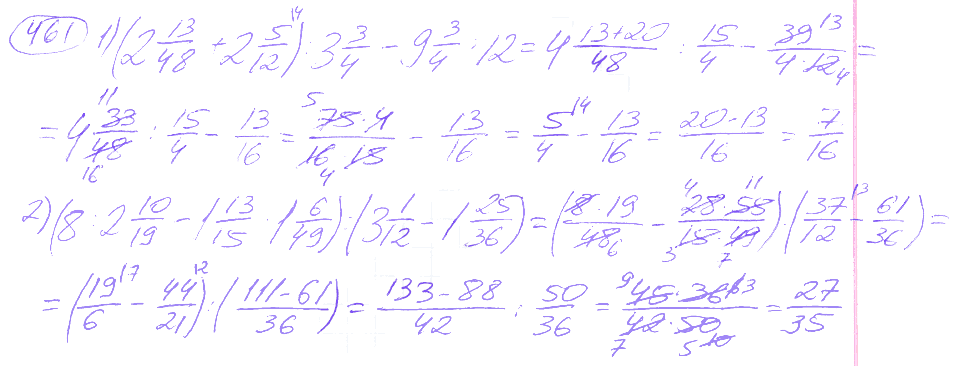 461 1) (2 13/48 + 2 5/12^{14}) : 3 3/4 − 9 3/4 : 12 = 4 (13+20)/48 : 15/4 − 39^{13}/(4·12_{4}) =
= 4 33^{11}/48_{16} : 15/4 − 13/16 = (75^{5}·4)/(16_{4}·15) − 13/16 = 5/4^{14} − 13/16 = (20−13)/16 = 7/16
2) (8 : 2 10/19 − 1 13/15 · 1 6/49) : (3 1/12 − 1 25/36) = ((8·19)/48_{6} − (28^{4}·55^{11})/(15_{3}·49_{7})) : (37/12^{13} − 61/36) =
= (19/6^{17} − 44/21^{12}) : ((111−61)/36) = (133−88)/42 : 50/36 = (45^{9}·36^{63})/(42_{7}·50_{10 5}) = 27/35